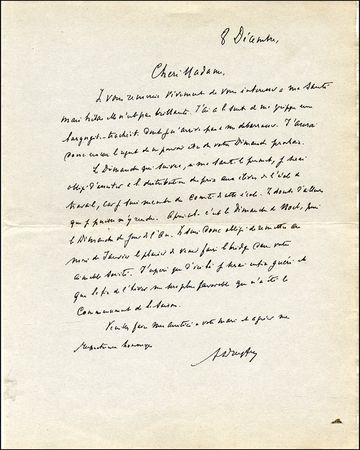 8 Décembre,
Chère Madame,
Je vous remercie vivement de vous intéresser à ma santé
mais hélas elle n'est pas brillante. J'ai à la suite de ma grippe une
laryngo-trachéite dont je n'arrive pas à me débarrasser. J'aurai
donc encore le regret de ne pouvoir être de votre Dimanche prochain.
Le Dimanche qui suivra, si ma santé le permet, je serai
obligé d'assister à la distribution de prix aux élèves de l'école
car je suis membre du Comité de cette école. Je doute d'ailleurs
que je puisse m'y rendre. Après cela c'est le Dimanche de Noël, puis
le Dimanche du Jour de l'An. Je suis donc obligé de remettre au
mois de Janvier le plaisir de venir faire le bridge dans votre
aimable société. J'espère que d'ici là je serai enfin guéri et
que la fin de l'hiver me sera plus favorable que n'a été le
Commencement de la saison.
Veuillez faire mes amitiés à votre mari et agréer mes
respectueux hommages